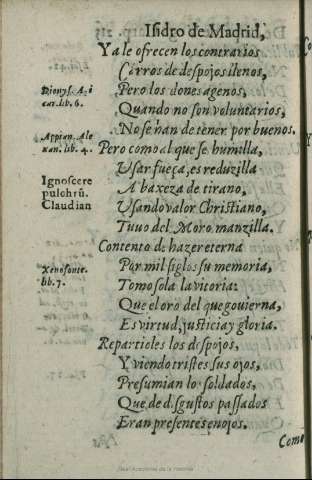 Isidro de Madrid,
Ya le ofrecen los contrarios
Carros de despojos llenos,
Pero los dones agenos,
Quando no son voluntarios,
No se han de tener por buenos.
Pero como al que se humilla,
Usar fueça, es reduzilla
A baxeza de tirano,
Usando valor Christiano,
Tuuo del Moro manzilla.
Contento de hazer eterna
Por mil siglos su memoria,
Tomo sola la vitoria:
Que el oro del que gouierna,
Es virtud, justicia y gloria.
Reparteles los despojos,
Y viendo tristes sus ojos,
Presumian los soldados,
Que de disgustos passados
Eran presentes enojos.
Como
Dionys. A. i
car. lib. 6.
Appian. Ale
xan. lib. 4.
Ignoscere
pulchrū.
Claudian
Xenofonte.
lib. 7.
Real Academia de la Historia